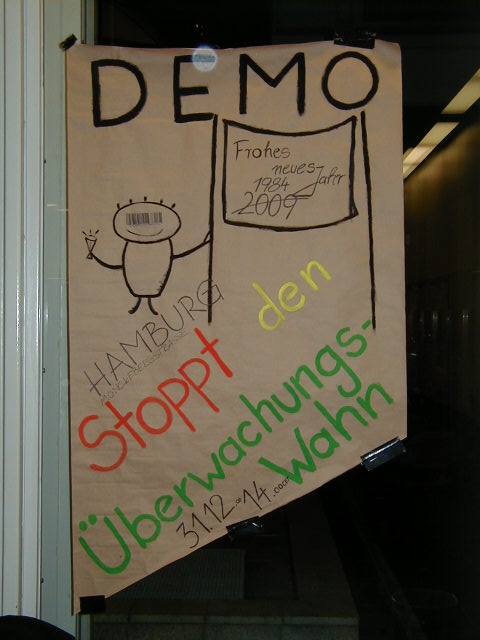 DEMO
Frohes
neues Jahr
1984
2009
HAMBURG
MÖNCKEBERGSTRASSE
Stoppt den
Überwachungs-
Wahn
31.12. 14.00